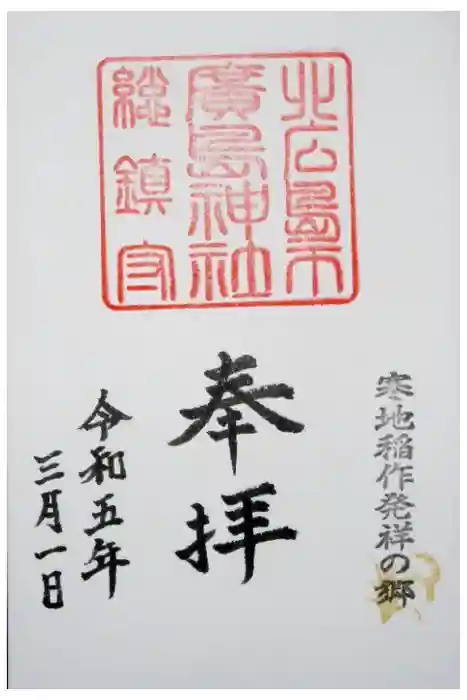 北広島市
廣島神社
総鎮守
寒地稲作発祥の郷
奉拝
令和五年
三月一日